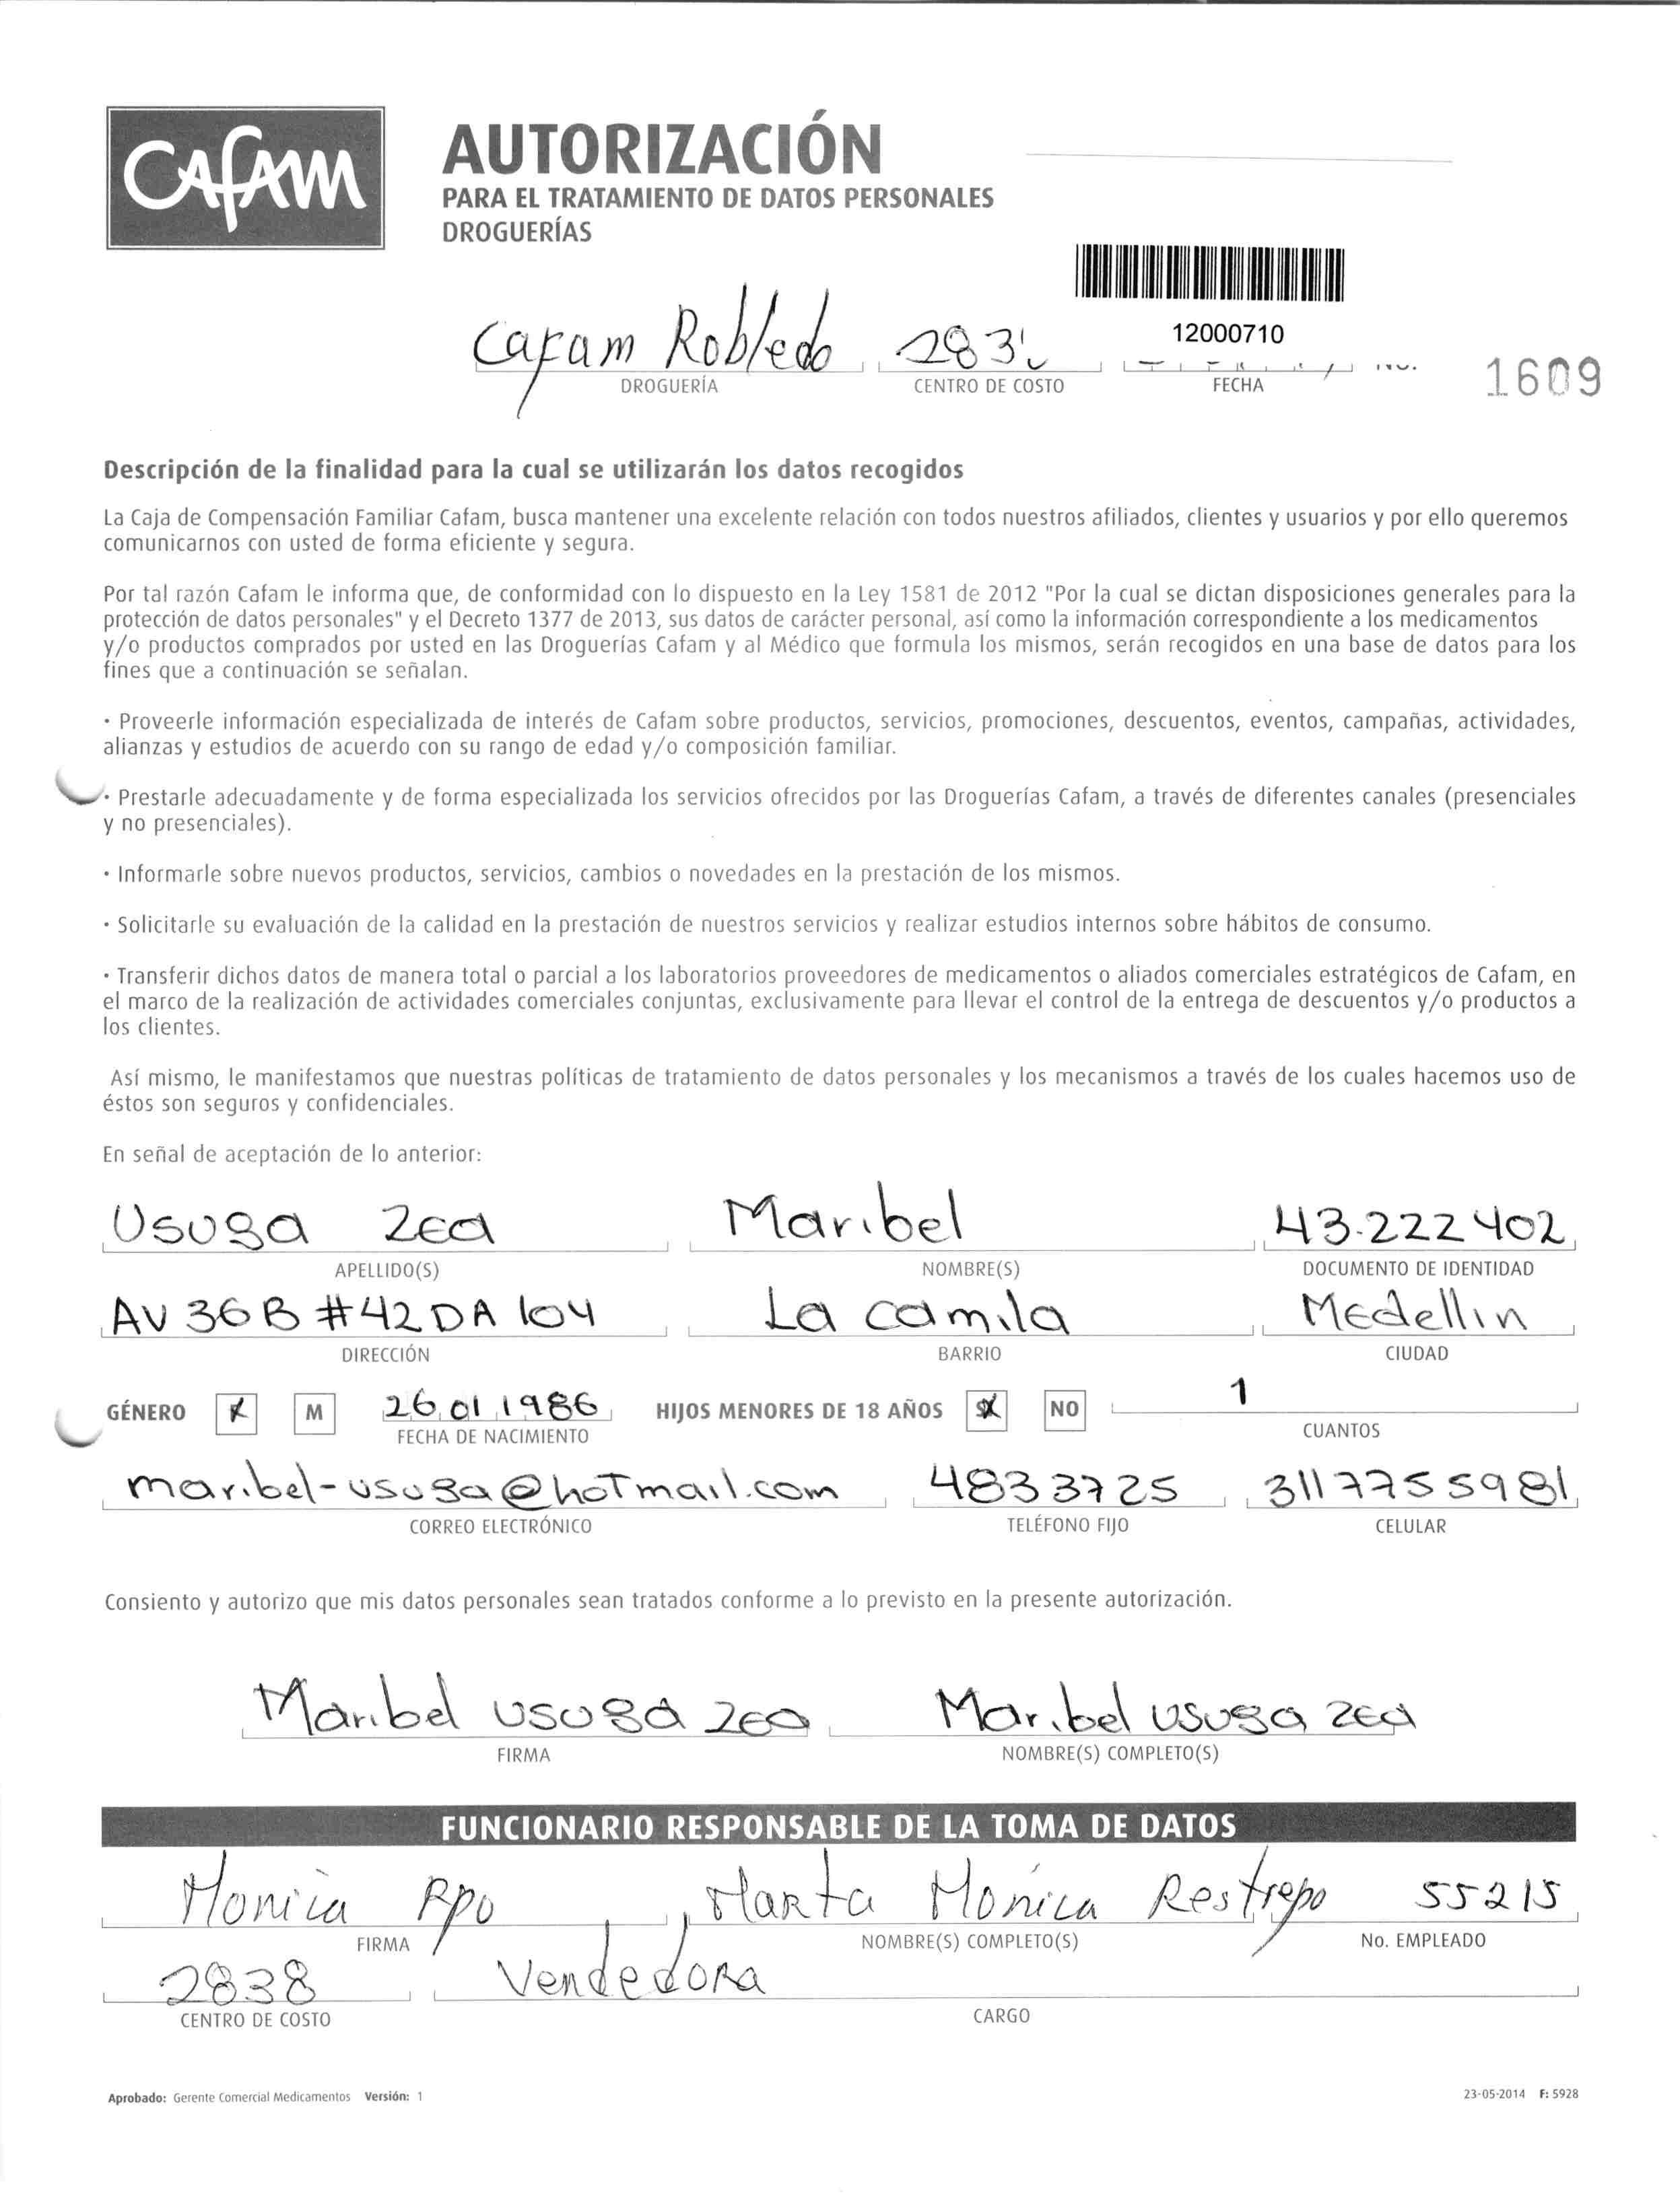 Cafam
AUTORIZACIÓN
PARA EL TRATAMIENTO DE DATOS PERSONALES
DROGUERÍAS
12000710
Cafam Robledo 283
DROGUERÍA CENTRO DE COSTO FECHA No. 1609
Descripción de la finalidad para la cual se utilizarán los datos recogidos
La Caja de Compensación Familiar Cafam, busca mantener una excelente relación con todos nuestros afiliados, clientes y usuarios y por ello queremos
comunicarnos con usted de forma eficiente y segura.
Por tal razón Cafam le informa que, de conformidad con lo dispuesto en la Ley 1581 de 2012 "Por la cual se dictan disposiciones generales para la
protección de datos personales" y el Decreto 1377 de 2013, sus datos de carácter personal, así como la información correspondiente a los medicamentos
y/o productos comprados por usted en las Droguerías Cafam y al Médico que formula los mismos, serán recogidos en una base de datos para los
fines que a continuación se señalan.
· Proveerle información especializada de interés de Cafam sobre productos, servicios, promociones, descuentos, eventos, campañas, actividades,
alianzas y estudios de acuerdo con su rango de edad y/o composición familiar.
· Prestarle adecuadamente y de forma especializada los servicios ofrecidos por las Droguerías Cafam, a través de diferentes canales (presenciales
y no presenciales).
· Informarle sobre nuevos productos, servicios, cambios o novedades en la prestación de los mismos.
· Solicitarle su evaluación de la calidad en la prestación de nuestros servicios y realizar estudios internos sobre hábitos de consumo.
· Transferir dichos datos de manera total o parcial a los laboratorios proveedores de medicamentos o aliados comerciales estratégicos de Cafam, en
el marco de la realización de actividades comerciales conjuntas, exclusivamente para llevar el control de la entrega de descuentos y/o productos a
los clientes.
Así mismo, le manifestamos que nuestras políticas de tratamiento de datos personales y los mecanismos a través de los cuales hacemos uso de
éstos son seguros y confidenciales.
En señal de aceptación de lo anterior:
Usuga Zea Maribel 43.222402
APELLIDO(S) NOMBRE(S) DOCUMENTO DE IDENTIDAD
AV 36B #42DA 104 La camila Medellin
DIRECCIÓN BARRIO CIUDAD
GÉNERO X M 26 01 1986 HIJOS MENORES DE 18 AÑOS X NO 1
FECHA DE NACIMIENTO CUANTOS
maribel-usuga@hotmail.com 4833725 3117755981
CORREO ELECTRÓNICO TELÉFONO FIJO CELULAR
Consiento y autorizo que mis datos personales sean tratados conforme a lo previsto en la presente autorización.
Maribel usuga zea Maribel usuga zea
FIRMA NOMBRE(S) COMPLETO(S)
FUNCIONARIO RESPONSABLE DE LA TOMA DE DATOS
Monica Rpo Marta Mónica Restrepo 55215
FIRMA NOMBRE(S) COMPLETO(S) No. EMPLEADO
2838 Vendedora
CENTRO DE COSTO CARGO
Aprobado: Gerente Comercial Medicamentos Versión: 1 23-05-2014 F: 5928